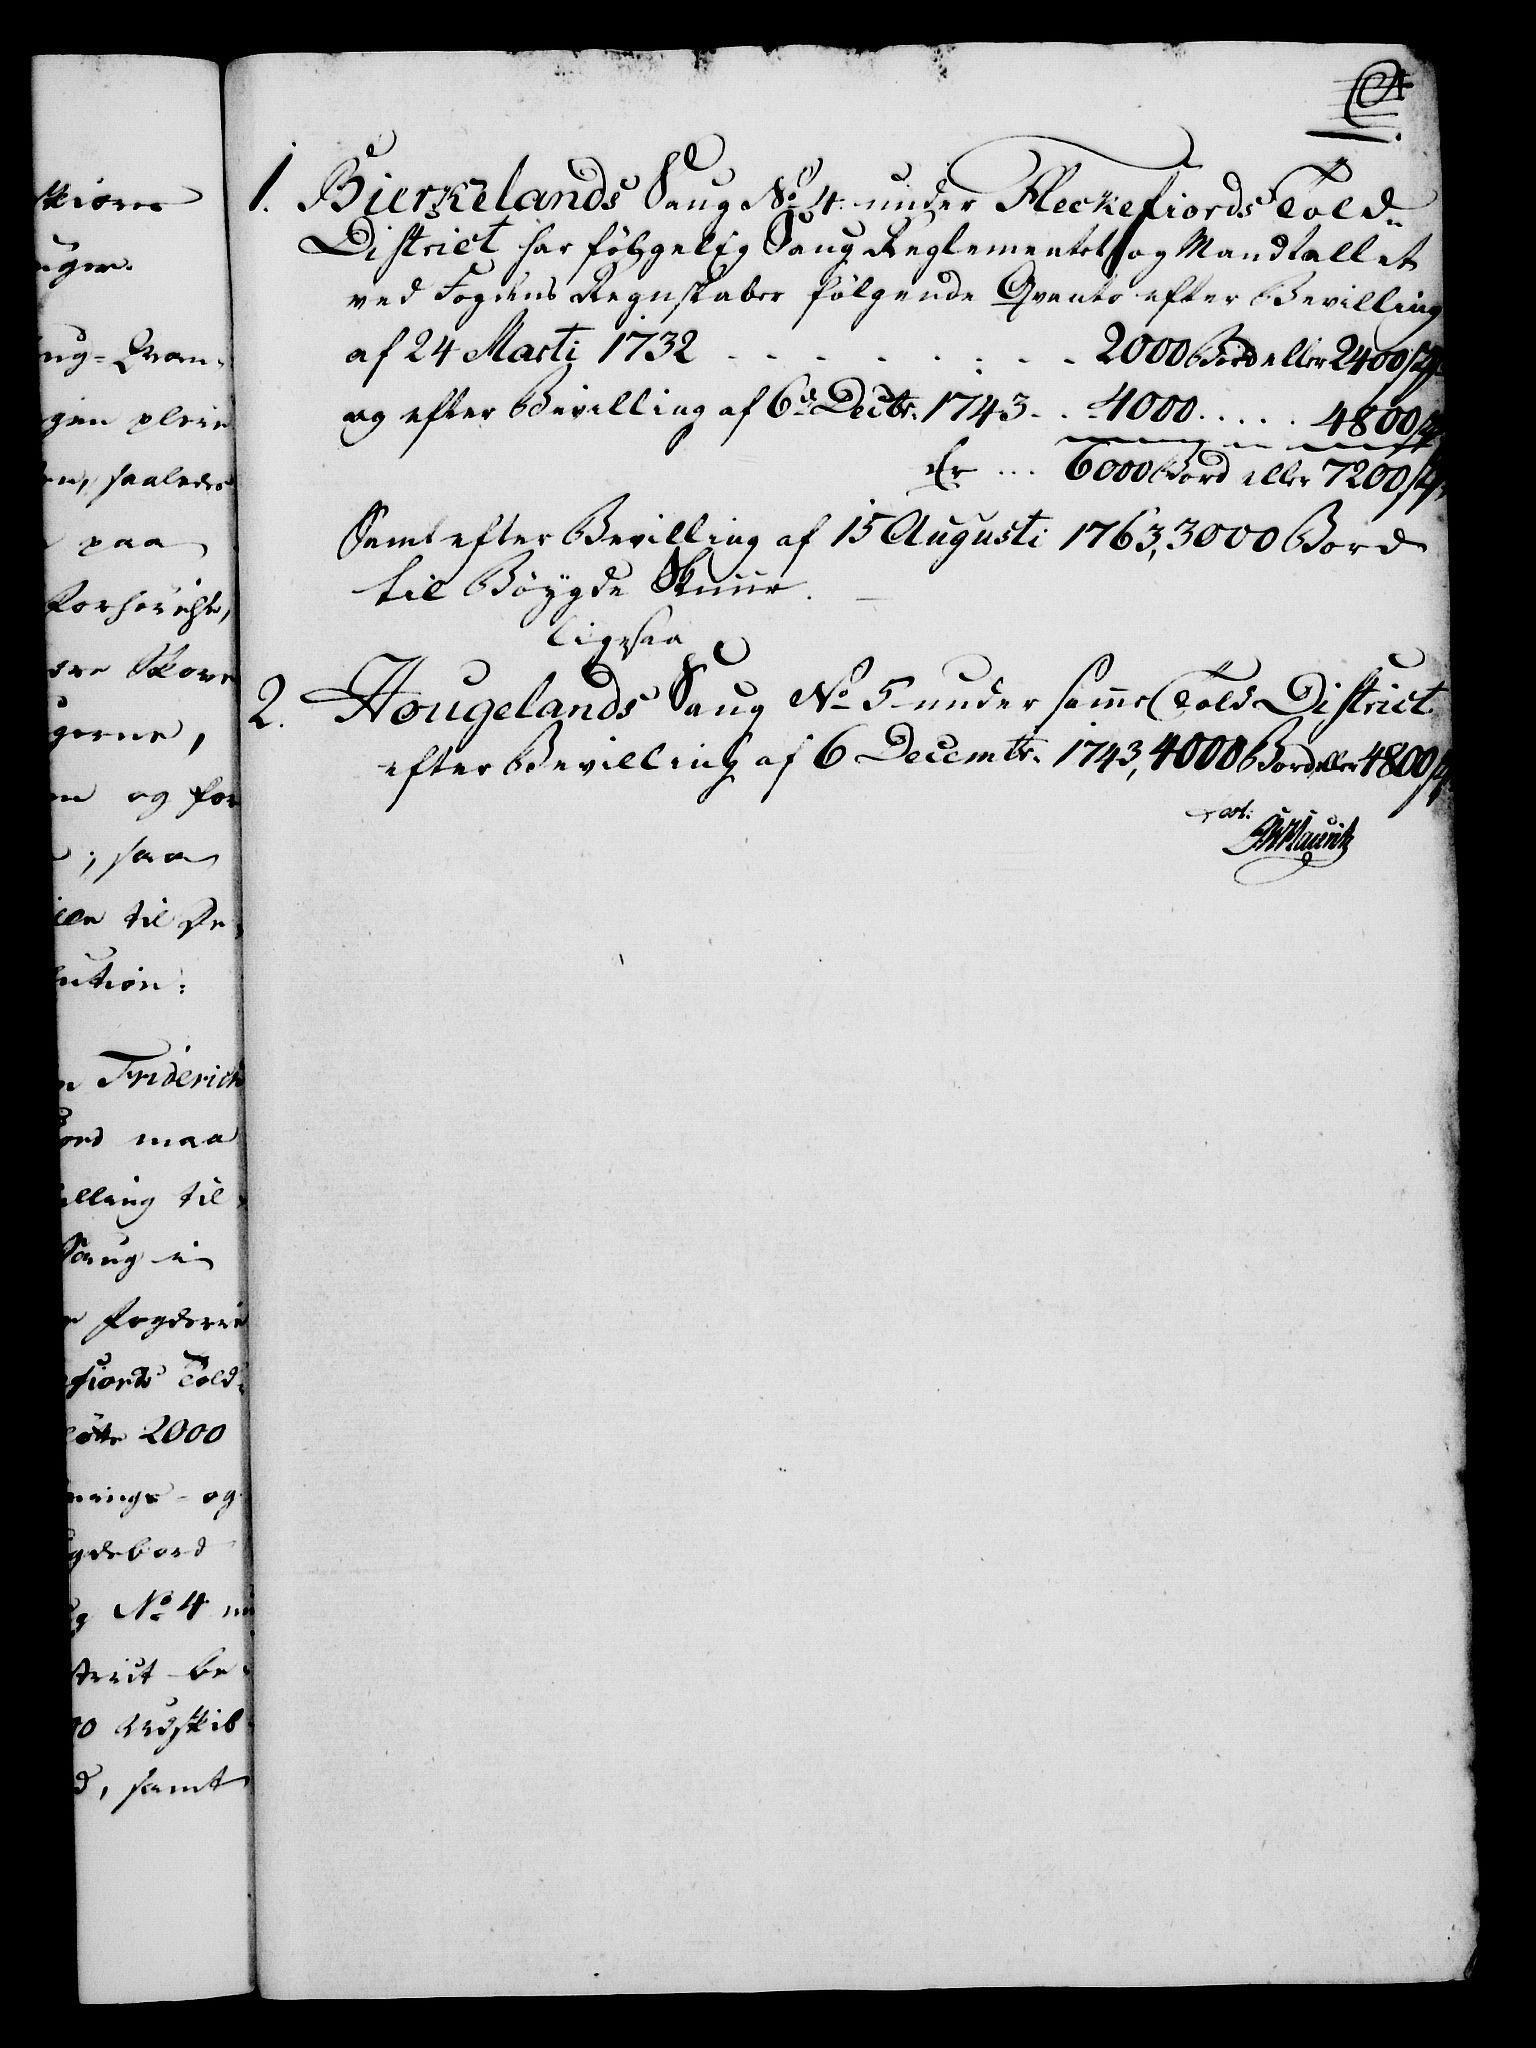 skiøree
uger.
ug=Qvan-
gen pleie
en, saaledes
paa
forhøiste,
dre Skove
gerne,
en og for
; saa
ille til De-
lution:
n Friderich
ord maa
illing til
Saug i
Fogderie
efiords Told-
2000
nings- og
gdebord
g No 4 un
strict be-
00 Udskib-
d, samt
A.
1. Bierkelands Saug No 4 under Fleckefiords Told-
District har følgelig Saug Reglementet og Mandtallet
ved Fogdens Regnskaber følgende Qvanta efter Bevilling
af 24 Marti 1732 - - - - - - - - 2000 Bord eller 2400 st.
og efter Bevilling af 6te Decbr. 1743 - . - 4000 . . . . . 4800 st.
Er ... 6000 Bord eller 7200 st.
Samt efter Bevilling af 15 Augusti 1763, 3000 Bord
til Bøygde Skuur.
ligesaa
2. Hougelands Saug No 5 under samme Told District
efter Bevilling af 6 Decembr. 1743, 4000 Bord eller 4800 st.